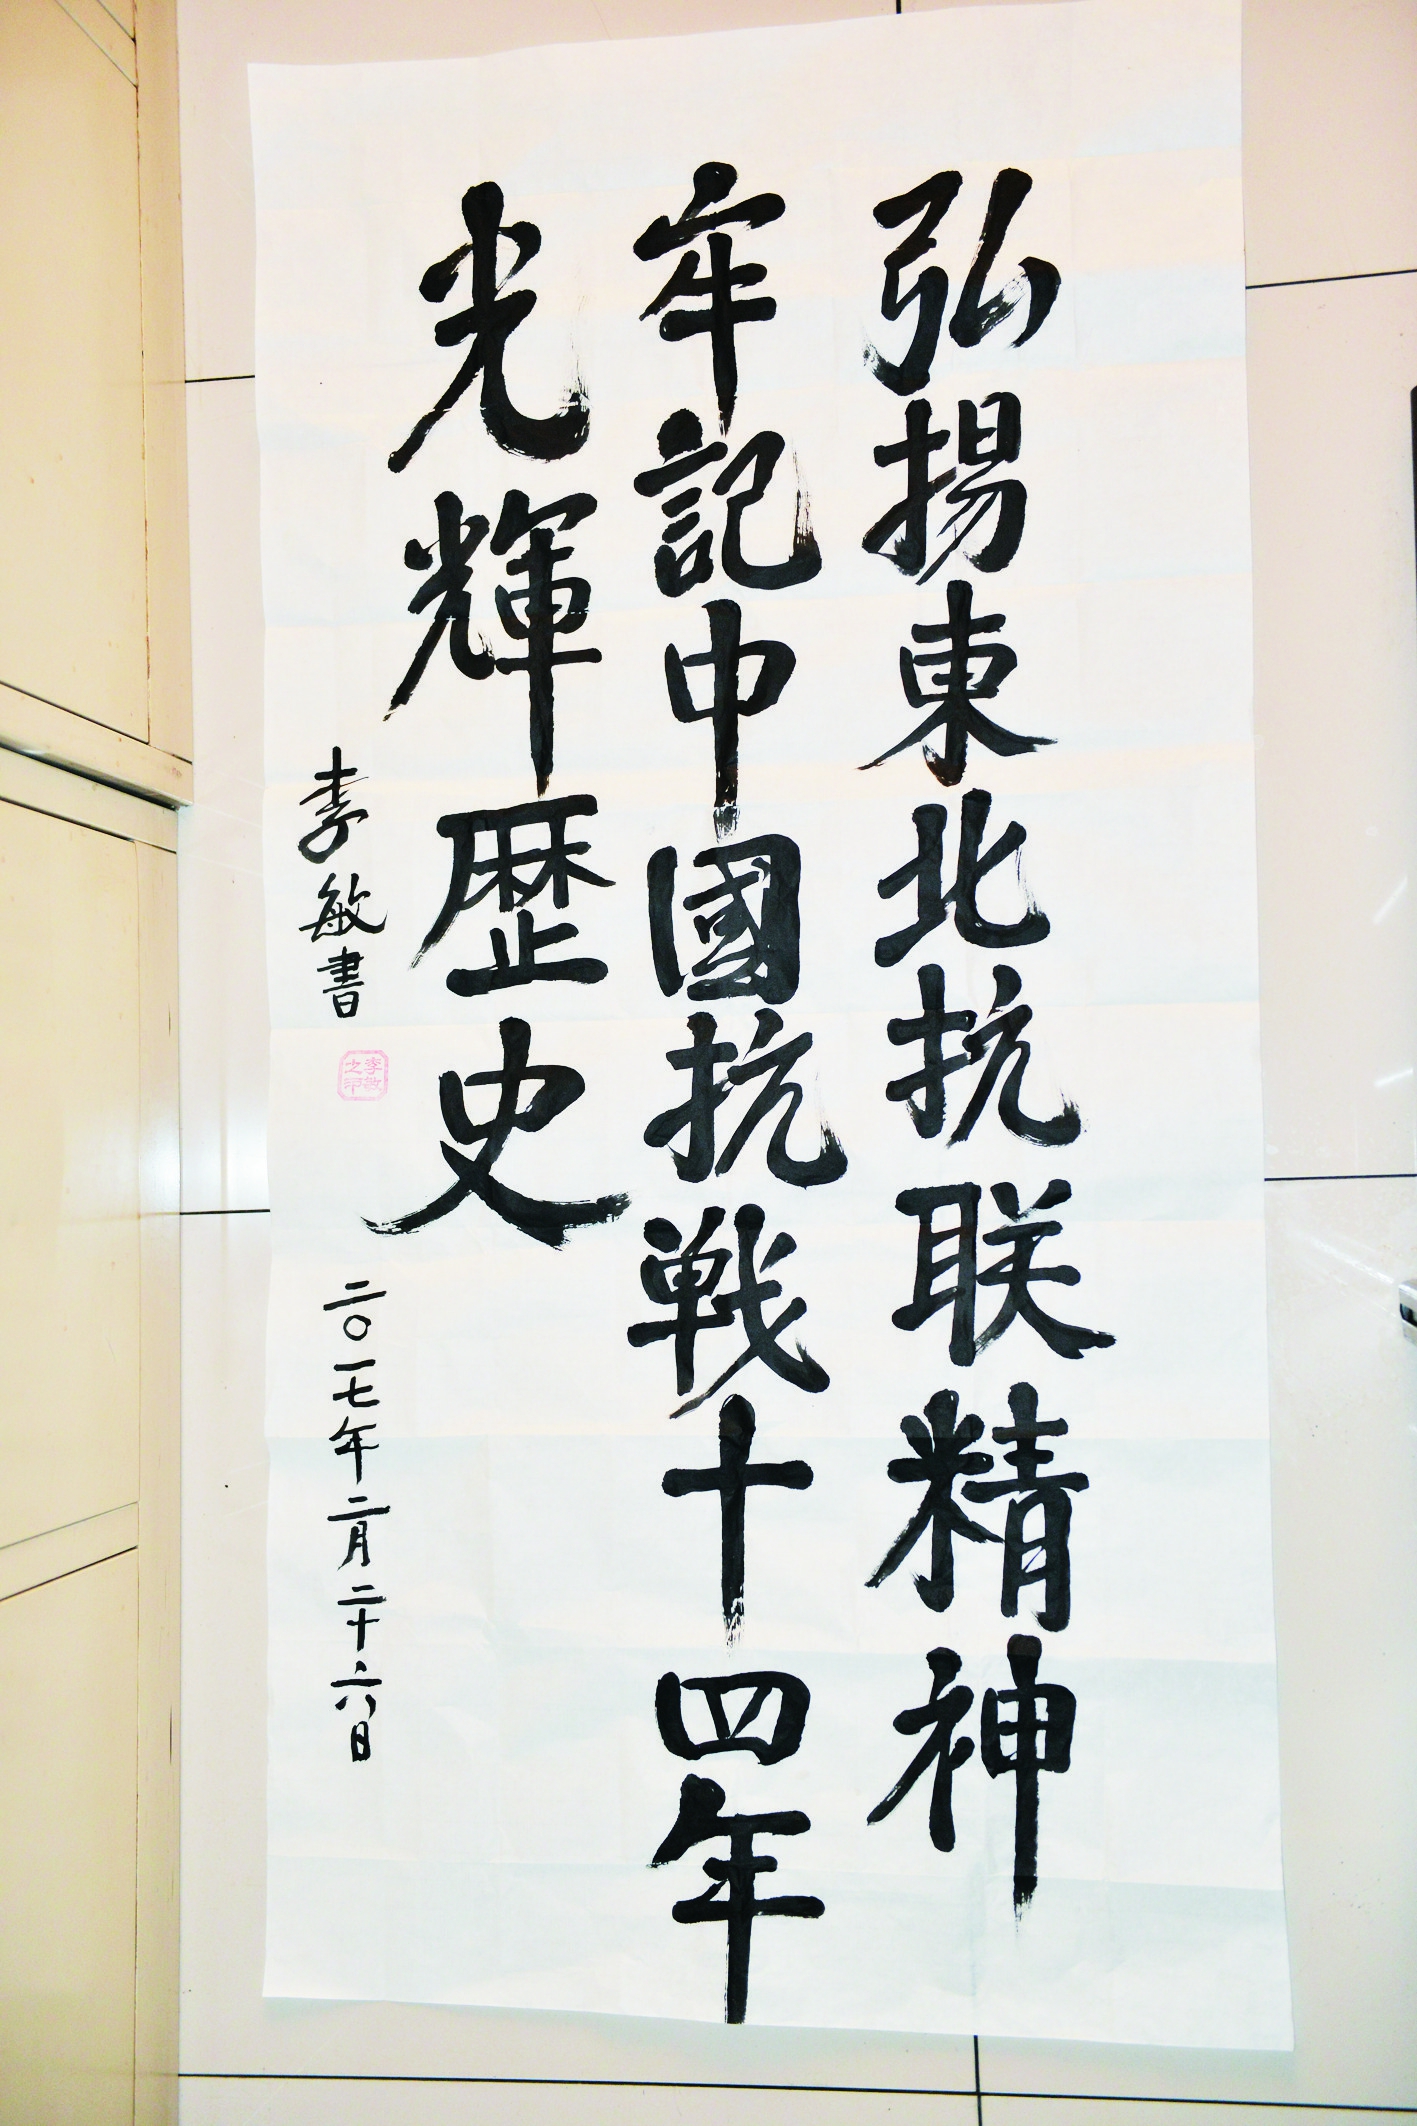 弘揚東北抗联精神
牢記中國抗戦十四年
光輝歴史
李敏書
李敏之印
二〇一七年二月二十六日